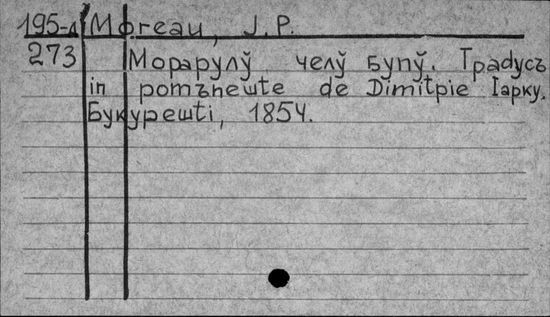 195-л Moreau, J.P.
273 Морарулў челў бупў. Традусъ
in ромънеште de Dimitрie Iарку.
Букурештi, 1854.